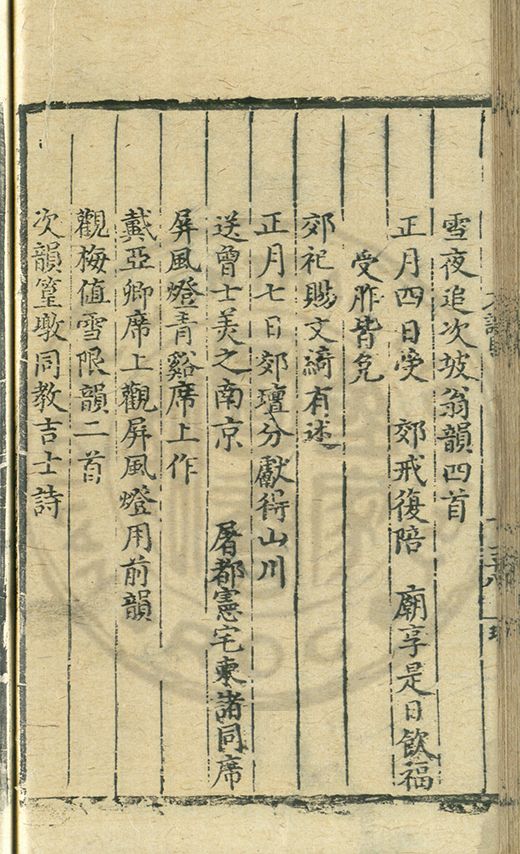 雪夜追次坡翁韻四首
正月四日受 郊戒復陪 廟享是日飲福
受胙皆免
郊祀賜文綺有述
正月七日郊壇分獻得山川
送曾士美之南京 屠都憲宅柬諸同席
屏風燈青谿席上作
戴亞卿席上觀屏風燈用前韻
觀梅值雪限韻二首
次韻篁墩同教吉士詩